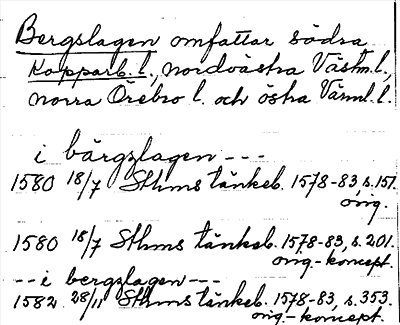 Bergslagen omfattar södra
Kopparb. l., nordvästra Västm. l.,
norra Örebro l. och östra Värml. l.
i bärgzlagen ---
1580 18/7 Sthms tänkeb. 1578-83, s. 151.
orig.
1580 18/7 Sthms tänkeb. 1578-83, s. 201.
orig.-koncept.
-- i bergzlagen ---
1582 28/11 Sthms tänkeb. 1578-83, s. 353.
orig.-koncept.